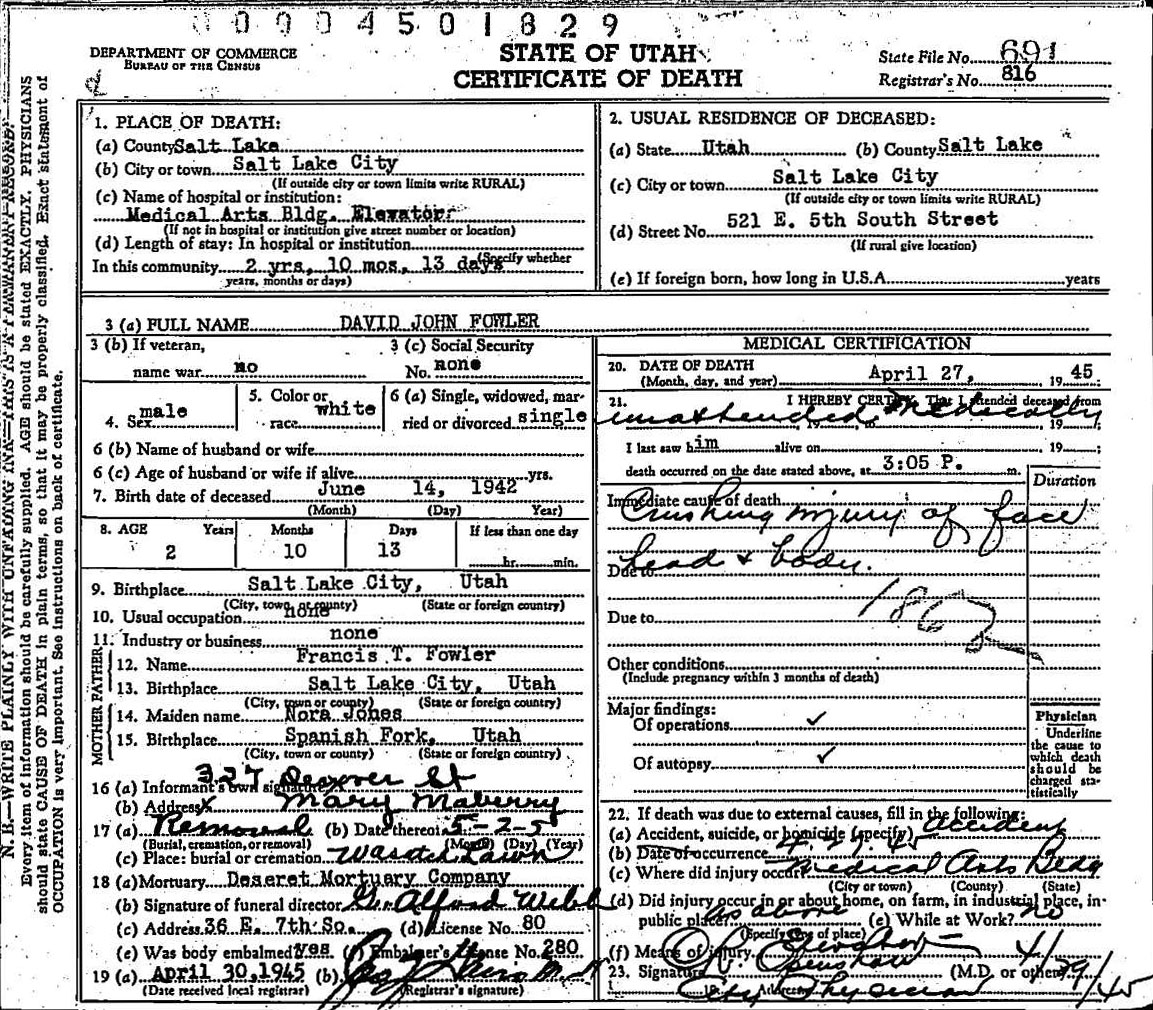 0 0 0 4 5 0 1 8 2 9
DEPARTMENT OF COMMERCE
BUREAU OF THE CENSUS
STATE OF UTAH
CERTIFICATE OF DEATH
State File No. 691
Registrar's No. 816
N. B.—WRITE PLAINLY WITH UNFADING INK—THIS IS A PERMANENT RECORD.
Every item of information should be carefully supplied. AGE should be stated EXACTLY. PHYSICIANS
should state CAUSE OF DEATH in plain terms, so that it may be properly classified. Exact statement of
OCCUPATION is very important. See instructions on back of certificate.
1. PLACE OF DEATH:
(a) County Salt Lake
(b) City or town Salt Lake City
(If outside city or town limits write RURAL)
(c) Name of hospital or institution:
Medical Arts Bldg. Elevator
(If not in hospital or institution give street number or location)
(d) Length of stay: In hospital or institution
(Specify whether
In this community 2 yrs, 10 mos, 13 days
years, months or days)
2. USUAL RESIDENCE OF DECEASED:
(a) State Utah (b) County Salt Lake
(c) City or town Salt Lake City
(If outside city or town limits write RURAL)
(d) Street No. 521 E. 5th South Street
(If rural give location)
(e) If foreign born, how long in U.S.A. years
3 (a) FULL NAME DAVID JOHN FOWLER
3 (b) If veteran,
name war no
3 (c) Social Security
No. none
4. Sex male
5. Color or
race white
6 (a) Single, widowed, mar-
ried or divorced single
6 (b) Name of husband or wife
6 (c) Age of husband or wife if alive yrs.
7. Birth date of deceased June 14, 1942
(Month) (Day) Year)
8. AGE Years Months Days If less than one day
2 10 13 hr. min.
9. Birthplace Salt Lake City, Utah
(City, town or county) (State or foreign country)
10. Usual occupation none
11. Industry or business none
FATHER
12. Name Francis T. Fowler
13. Birthplace Salt Lake City, Utah
(City, town or county) (State or foreign country)
MOTHER
14. Maiden name Nora Jones
15. Birthplace Spanish Fork, Utah
(City, town or county) (State or foreign country)
16 (a) Informant's own signature 327 Denver St
(b) Address x Mary Maberry
17 (a) Removal (b) Date thereof 5-2-5
(Burial, cremation, or removal) (Month) (Day) (Year)
(c) Place: burial or cremation Wasatch Lawn
18 (a) Mortuary Deseret Mortuary Company
(b) Signature of funeral director Alford Webb
(c) Address 36 E. 7th So. (d) License No. 80
(e) Was body embalmed? yes (f) Embalmer's License No. 280
19 (a) April 30, 1945 (b)
(Date received local registrar) (Registrar's signature)
MEDICAL CERTIFICATION
20. DATE OF DEATH
(Month, day, and year) April 27, 19 45
21. I HEREBY CERTIFY, That I attended deceased from
unattended medically
19 to 19
I last saw him alive on 19
death occurred on the date stated above, at 3:05 P. m.
Duration
Immediate cause of death
Crushing injury of face
head & body.
Due to
Due to
Other conditions
(Include pregnancy within 3 months of death)
Major findings:
Of operations ✓
Of autopsy ✓
Physician
Underline
the cause to
which death
should be
charged sta-
tistically
22. If death was due to external causes, fill in the following:
(a) Accident, suicide, or homicide (specify) accident
(b) Date of occurrence 4.27.45
(c) Where did injury occur? Medical Arts Bldg
(City or town) (County) (State)
(d) Did injury occur in or about home, on farm, in industrial place, in
public place? as above (e) While at Work? no
(Specify type of place)
(f) Means of injury
23. Signature Openshaw (M.D. or other) 4/29/45
Address City Physician